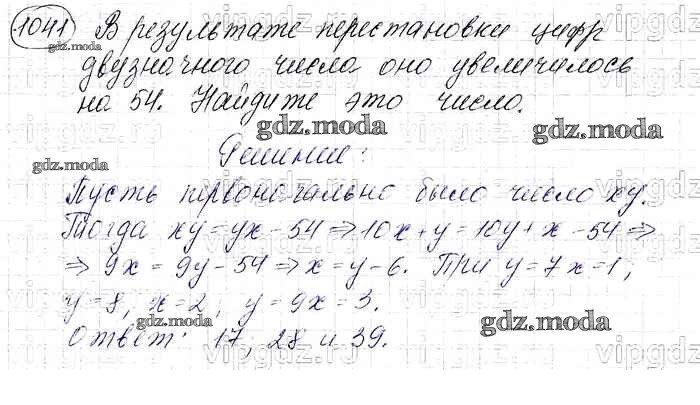 1041 В результате перестановки цифр
двузначного числа оно увеличилось
на 54. Найдите это число.
Решение:
Пусть первоначально было число xy.
Тогда xy = yx - 54 ⇒ 10x + y = 10y + x - 54 ⇒
⇒ 9x = 9y - 54 ⇒ x = y - 6. При y = 7 x = 1;
y = 8, x = 2; y = 9 x = 3.
Ответ: 17, 28 и 39.
gdz.moda
gdz.moda
gdz.moda
gdz.moda
gdz.moda
gdz.moda
vipgdz.ru